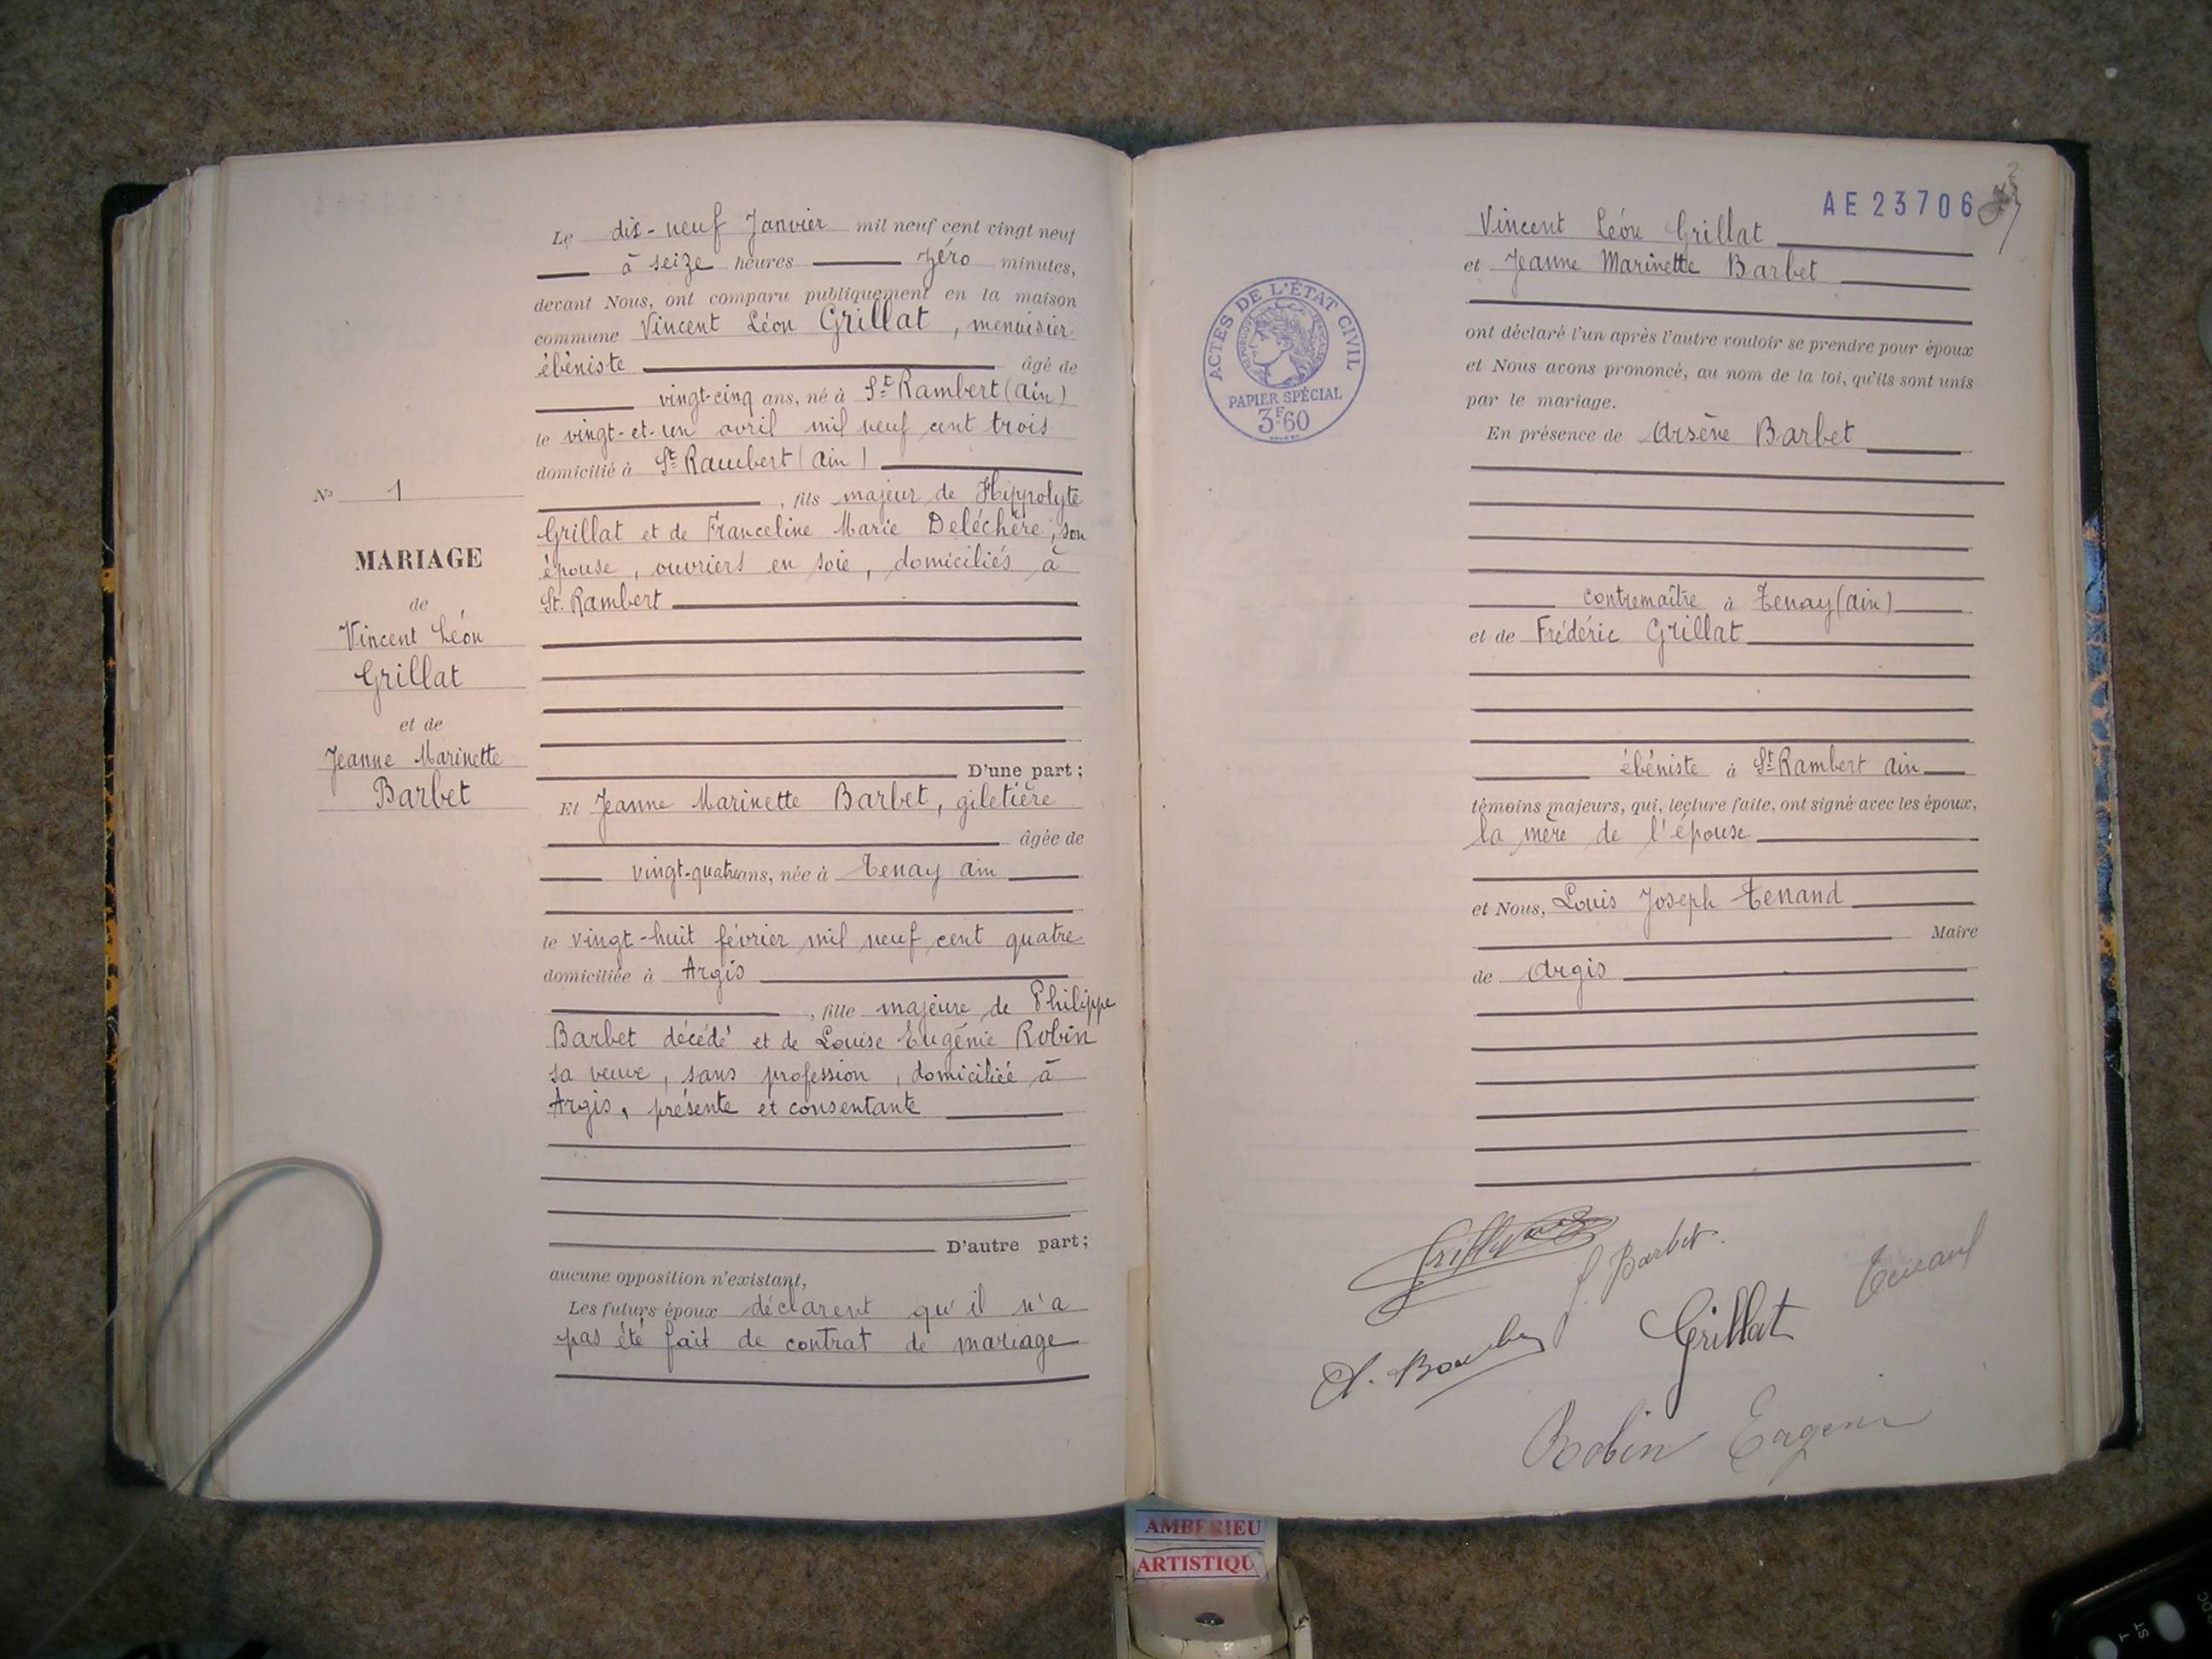 Le dix-neuf Janvier mil neuf cent vingt neuf
à seize heures zéro minutes,
devant Nous, ont comparu publiquement en la maison
commune Vincent Léon Grillat, menuisier
ébéniste âgé de
vingt-cinq ans, né à St Rambert (Ain)
le vingt-et-un avril mil neuf cent trois
domicilié à St Rambert (Ain)
, fils majeur de Hippolyte
Grillat et de Franceline Marie Deléchère, son
épouse, ouvriers en soie, domiciliés à
St. Rambert
D'une part;
Et Jeanne Marinette Barbet, giletière
âgée de
vingt-quatre ans, née à Tenay Ain
le vingt-huit février mil neuf cent quatre
domiciliée à Argis
, fille majeure de Philippe
Barbet décédé et de Louise Eugénie Robin
sa veuve, sans profession, domiciliée à
Argis, présente et consentante
D'autre part;
aucune opposition n'existant,
Les futurs époux déclarent qu'il n'a
pas été fait de contrat de mariage
No 1
MARIAGE
de
Vincent Léon
Grillat
et de
Jeanne Marinette
Barbet
AE 23706
Vincent Léon Grillat
et Jeanne Marinette Barbet
ont déclaré l'un après l'autre vouloir se prendre pour époux
et Nous avons prononcé, au nom de la loi, qu'ils sont unis
par le mariage.
En présence de Arsène Barbet
contremaître à Tenay (Ain)
et de Frédéric Grillat
ébéniste à St Rambert Ain
témoins majeurs, qui, lecture faite, ont signé avec les époux,
la mère de l'épouse
et Nous, Louis Joseph Tenand
Maire
de Argis
ACTES DE L'ÉTAT CIVIL
RÉPUBLIQUE FRANÇAISE
PAPIER SPÉCIAL
3F60
J. Barbet.
Tenand
Grillat
Robin Eugeni
AMBERIEU
ARTISTIQU